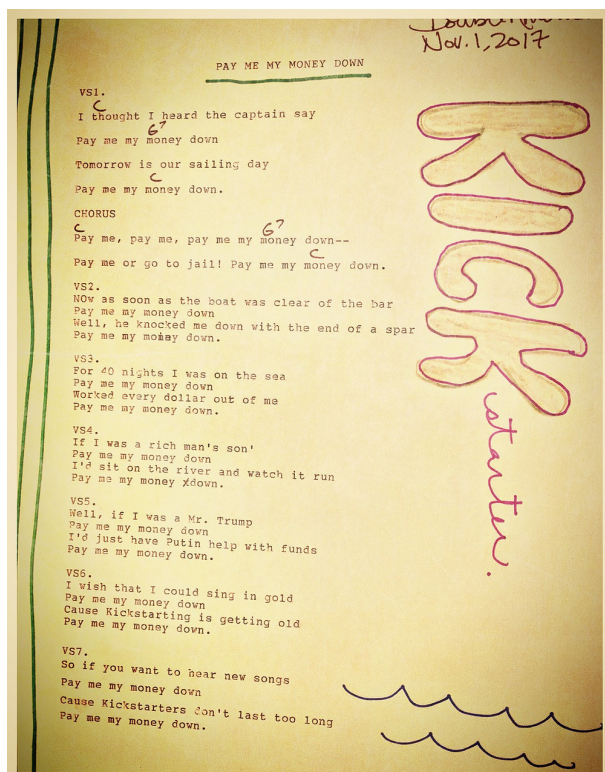 Nov. 1, 2017
PAY ME MY MONEY DOWN
VS1.
C
I thought I heard the captain say
G7
Pay me my money down
Tomorrow is our sailing day
C
Pay me my money down.
CHORUS
C G7
Pay me, pay me, pay me my money down--
C
Pay me or go to jail! Pay me my money down.
VS2.
Now as soon as the boat was clear of the bar
Pay me my money down
Well, he knocked me down with the end of a spar
Pay me my money down.
VS3.
For 40 nights I was on the sea
Pay me my money down
Worked every dollar out of me
Pay me my money down.
VS4.
If I was a rich man's son'
Pay me my money down
I'd sit on the river and watch it run
Pay me my money down.
VS5.
Well, if I was a Mr. Trump
Pay me my money down
I'd just have Putin help with funds
Pay me my money down.
VS6.
I wish that I could sing in gold
Pay me my money down
Cause Kickstarting is getting old
Pay me my money down.
VS7.
So if you want to hear new songs
Pay me my money down
Cause Kickstarters don't last too long
Pay me my money down.
KICK
starter.